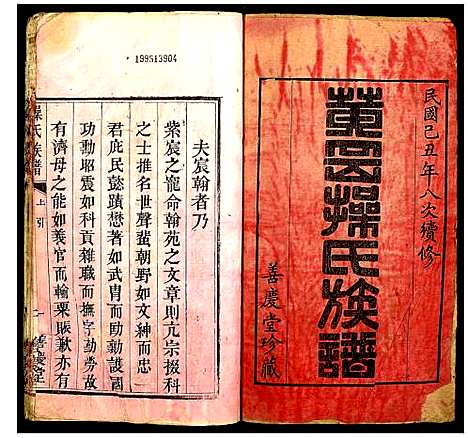 民國己丑年八次續修
黄岡操氏族譜
善慶堂珍藏
199513904
夫宸翰者乃
紫宸之寵命翰苑之文章則亢宗掇科
之士推名世聲蜚朝野如文紳而忠
君庶民彭蹟懋著如武胄而勤勞護國
功勳昭震如科貢雜職而撫字勤勞故
有濟母之能如義官而輸粟賑歉亦有
操氏族譜
上 引
一
善慶堂